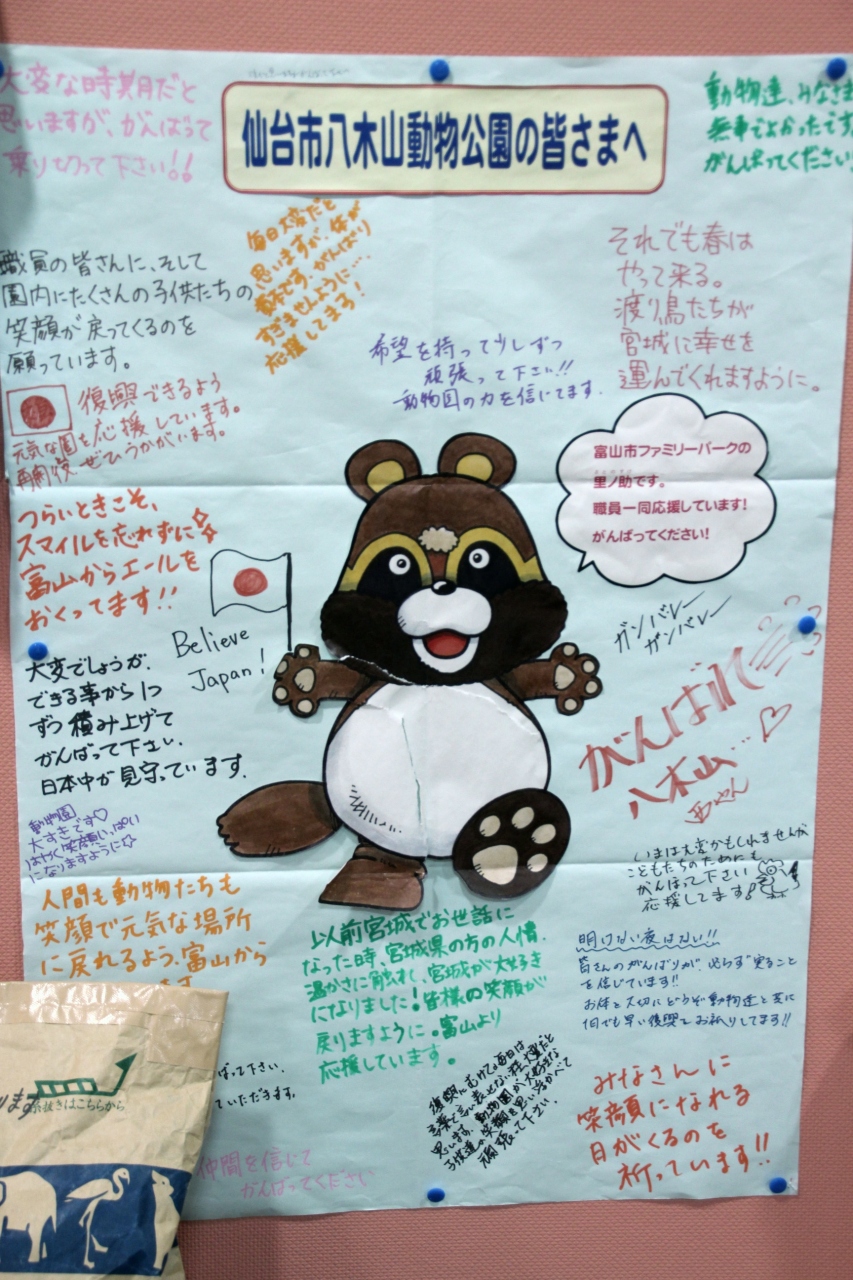 仙台市八木山動物公園の皆さまへ
大変な時期だと
思いますが、がんばって
乗り切って下さい!!
動物達、みなさま
無事でよかったです
がんばってください!
毎日大変だと
思いますが、体が
資本です。がんばり
すぎませんように…
応援してます!
職員の皆さんに、そして
園内にたくさんの子供たちの
笑顔が戻ってくるのを
願っています。
それでも春は
やって来る。
渡り鳥たちが
宮城に幸せを
運んでくれますように。
希望を持って少しずつ
頑張って下さい!!
動物園の力を信じてます.
復興できるよう
応援しています。
再開後、ぜひうかがいます。
富山市ファミリーパークの
里ノ助です。
職員一同応援しています!
がんばってください!
つらいときこそ、
スマイルを忘れずに☆
富山からエールを
おくってます!!
Believe
Japan!
ガンバレー
ガンバレー
大変でしょうが、
できる事から1つ
ずつ積み上げて
がんばって下さい.
日本中が見守っています.
がんばれ
八木山…♡
動物園
大すきです♡
はやく笑顔いっぱい
になりますように☆
いまは大変かもしれませんが
こどもたちのためにも
がんばって下さい
応援してます!
人間も動物たちも
笑顔で元気な場所
に戻れるよう、富山から
以前宮城でお世話に
なった時、宮城県の方の人情、
温かさに触れて、宮城が大好き
になりました!皆様の笑顔が
戻りますように。富山より
応援しています。
明けない夜はない!!
皆さんのがんばりが、必らず実ること
を信じています!!
お体を大切にどうぞ動物達と共に
1日でも早い復興をお祈りしてます!!
復興にむけての毎日は
言葉で言い表せない程、大変だと
思います。動物園が大好きな
子供達の笑顔を思い浮かべて
頑張って下さい。
みなさんに
笑顔になれる
日がくるのを
祈っています!!
ばって下さい.
ていただきます.
仲間を信じて
がんばってください
ります
糸抜きはこちらから